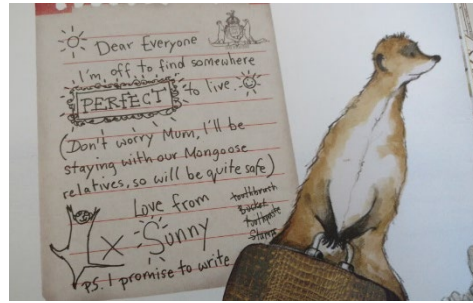 Dear Everyone
I'm off to find somewhere
PERFECT to live.
(Don't worry Mum, I'll be
staying with our Mongoose
relatives, so will be quite safe)
Love from
X Sunny
toothbrush
Bucket
toothpaste
Stamps
P.S. I promise to write